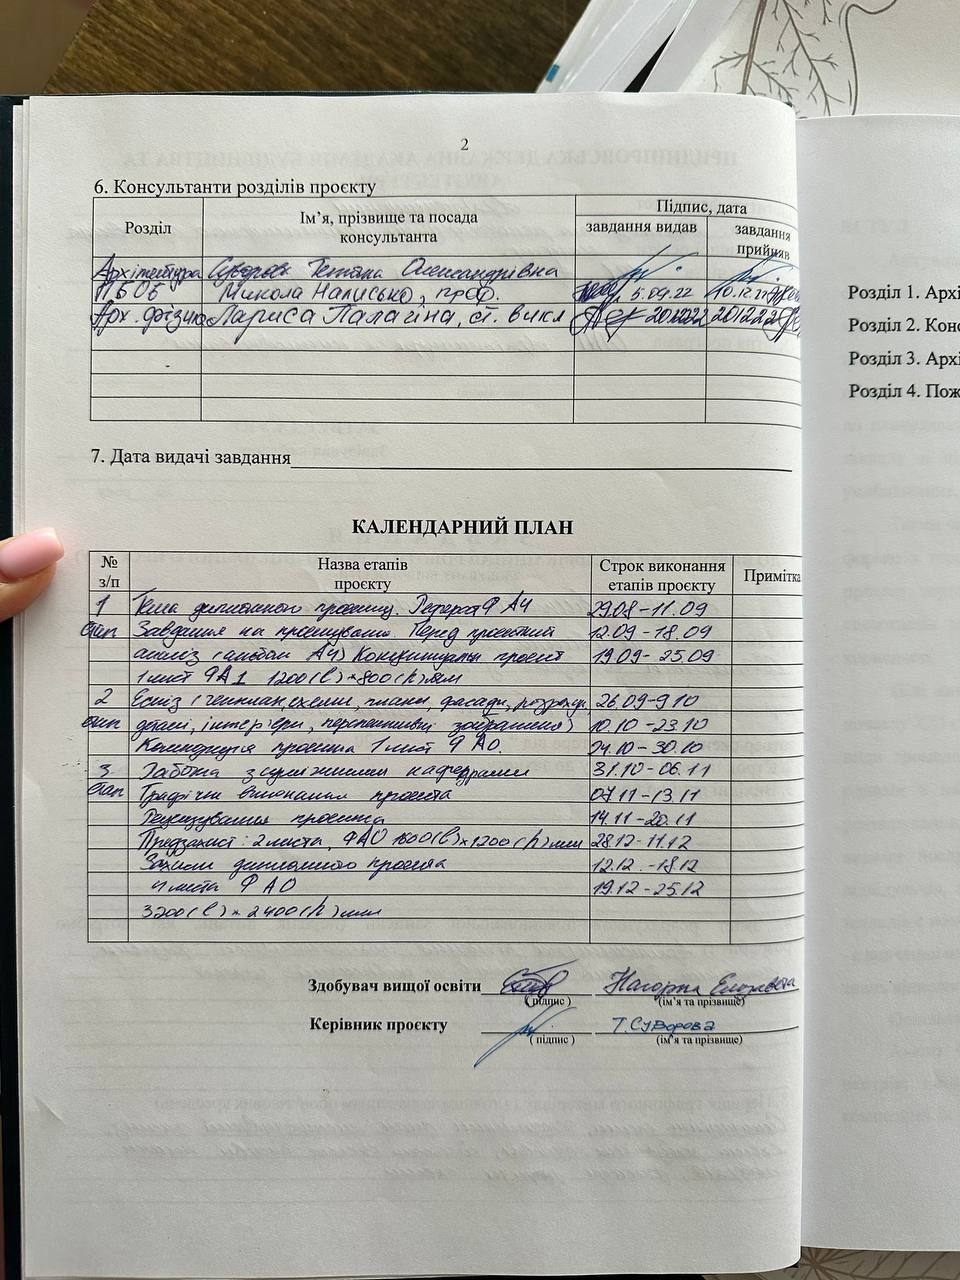 2
6. Консультанти розділів проєкту
Розділ
Ім’я, прізвище та посада консультанта
Підпис, дата
завдання видав
завдання прийняв
Архітектура Суворова Тетяна Олександрівна
ПБОБ Микола Налисько, проф. 5.09.22
Арх. фізика Лариса Палагіна, ст. викл 20.12.22 20.12.22
7. Дата видачі завдання
КАЛЕНДАРНИЙ ПЛАН
№ з/п
Назва етапів проєкту
Строк виконання етапів проєкту
Примітка
1 Тема дипломного проекту. Реферат Ф А4 29.08-11.09
етап Завдання на проектування. Перед проектний 12.09-18.09
аналіз (альбом А4) Концептуальн проект 19.09-25.09
1 лист ФА1 1200(l)×800(h)мм
2 Ескіз (генплан, схеми, плани, фасади, розрізи, 26.09-9.10
етап деталі, інтер'єри, перспективні зображення) 10.10-23.10
Композиція проекта 1 лист Ф А0. 24.10-30.10
3 Работа з суміжними кафедрами 31.10-06.11
етап Графічне виконання проекта 07.11-13.11
Рецензування проекта 14.11-20.11
Предзахист: 2 листа, ФА0 1600(l)×1200(h)мм 28.12-11.12
Захист дипломного проекта 12.12.-18.12
4 листа Ф А0 19.12-25.12
3200(l)×2400(h)мм
Здобувач вищої освіти Нагорна Єлизавета
(підпис ) (ім’я та прізвище)
Керівник проєкту Т. Суворова
( підпис ) (ім’я та прізвище)
Розділ 1. Архі
Розділ 2. Конс
Розділ 3. Архі
Розділ 4. Пож